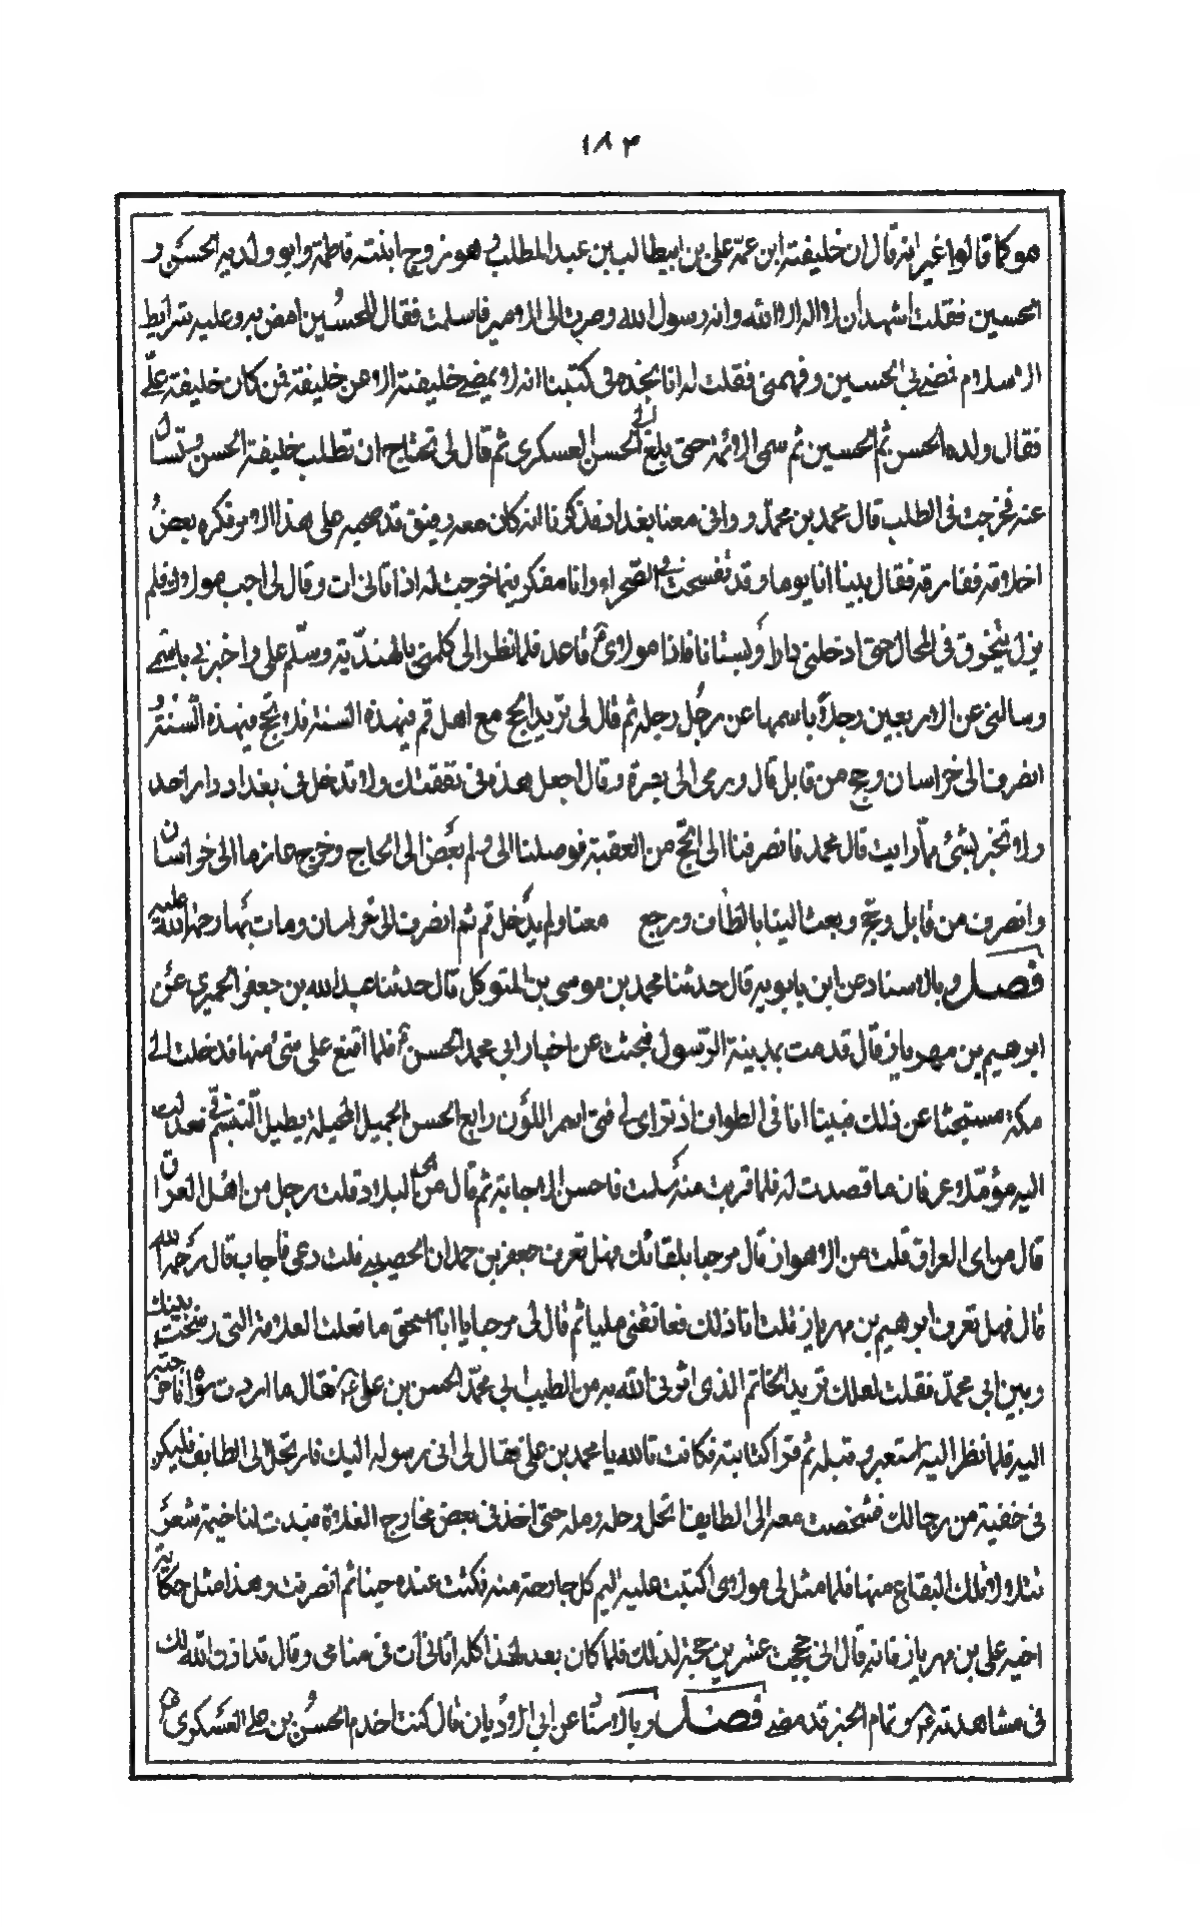 ١٨٣
هو كما قالوا غير انه قال ان خليفته ابن عمّه علي بن ابيطالب بن عبد المطلب وهو زوج ابنته فاطمة وابو ولديه الحسن و
الحسين فقلت أشهد أن لا اله الا الله وانه رسول الله وصرت الى الامير فاسلمت فقال للحسين امض به وعليه شرايط
الاسلام فمضى بي الحسين وفهمني فقلت له انا نجد في كتبنا انه لا يمضي خليفة الا عن خليفة فمن كان خليفة علي
فقال ولده الحسن ثم الحسين ثم سمى الائمة حتى بلغ الى الحسن العسكرى ثم قال لى تحتاج ان تطلب خليفة الحسن وتسأل
عنه فخرجت فى الطلب قال محمد بن محمّد ووافى معنا بغداد فذكر لنا انه كان معه رفيق قد صحبه على هذا الامر فكره بعض
اخلاقه ففارقه فقال بينا انا يوما وقد تفسحت فى الصحراء وانا مفكر فيما خرجت له اذا اتانى آت وقال لى اجب مولاك فلم
يزل يخترق فى المحال حتى ادخلني دارا وبستانا فاذا مولاى ع قاعد فلما نظر الى كلمني بالهنديّة وسلّم على واخبرني باسمى
وسالني عن الاربعين رجلا باسمهائهم عن رجل رجل ثم قال لى تريد الحج مع اهل قم فى هذه السنة فلا تحج فى هذه السنة و
انصرف الى خراسان وحج من قابل قال ورمى الى بصرة وقال اجعل هذه فى نفقتك ولا تدخل فى بغداد دار احد
ولا تخبر بشئ ممّا رايت قال محمد فانصرفنا الى الحج من العقبة فوصلنا الى ولم يقض الى الحاج وخرج عازما الى خراسان
وانصرف من قابل وحج وبعث الينا بالطاف ورجع معنا ولم يدخل قم ثم انصرف الى خراسان ومات بها رحمة الله عليه
فصل وبالاسناد عن ابن بابويه قال حدثنا محمد بن موسى بن المتوكل قال حدثنا عبد الله بن جعفر الحميرى عن
ابرهيم بن مهزيار قال قدمت بمدينة الرّسول فبحثت عن اخبار ابى محمد الحسن ع فلما اقع على شئ منها فدخلت الى
مكة مستبحثا عن ذلك فبينا انا فى الطواف اذ تراى لى فتى اسمر اللون رايع الحسن الجميل المخيلة يطيل التبسّم فى فعدلت
اليه مؤمّلا عرفان ما قصدت له فلما قربت منه سلمت فاحسن الاجابة ثم قال من اى البلاد قلت رجل من اهل العراق
قال من اى العراق قلت من الاهواز قال مرحبا بلقائك فهل تعرف جعفر بن حمدان الحصيني قلت دعى فاجاب قال رحمه الله
قال فهل تعرف ابرهيم بن مهزيار قلت انا ذلك فعانقنى مليا ثم قال لى مرحبا يا ابا اسحق ما فعلت العلامة التى وشجت بينك
وبين ابى محمّد فقلت لعلك تريد الخاتم الذى اثرنى الله به من الطيب ابى محمّد الحسن بن على ع فقال ما اردت سواه فاخرجته
اليه فلما نظر اليه استعبر وقبله ثم قرأ كتابته فكانت يا الله يا محمد يا على فقال لى انى رسوله اليك فارتحل الى الطايف وليكن
فى خفية من رجالك فشخصت معه الى الطايف اتخلل رحله رملة حتى اخذ فى بعض مخارج الفلاة فبدت لنا خيمة شعر
تتلالا تلك البقاع منها فلما مثل لى مولاى اكببت عليه الثم كل جارحة منه فمكثت عنده حينا ثم انصرفت وهذا مثل حكاية
اخيه على بن مهزيار فانه قال انى حججت عشرين حجة لذلك فلما كان بعد هذا كله اتانى آت فى منامى وقال قد اذن الله لك
فى مشاهدته ع وتمام الخبر قد مضى فصل وبالاسناد عن ابى الاديان قال كنت اخدم الحسن بن على العسكرى ع